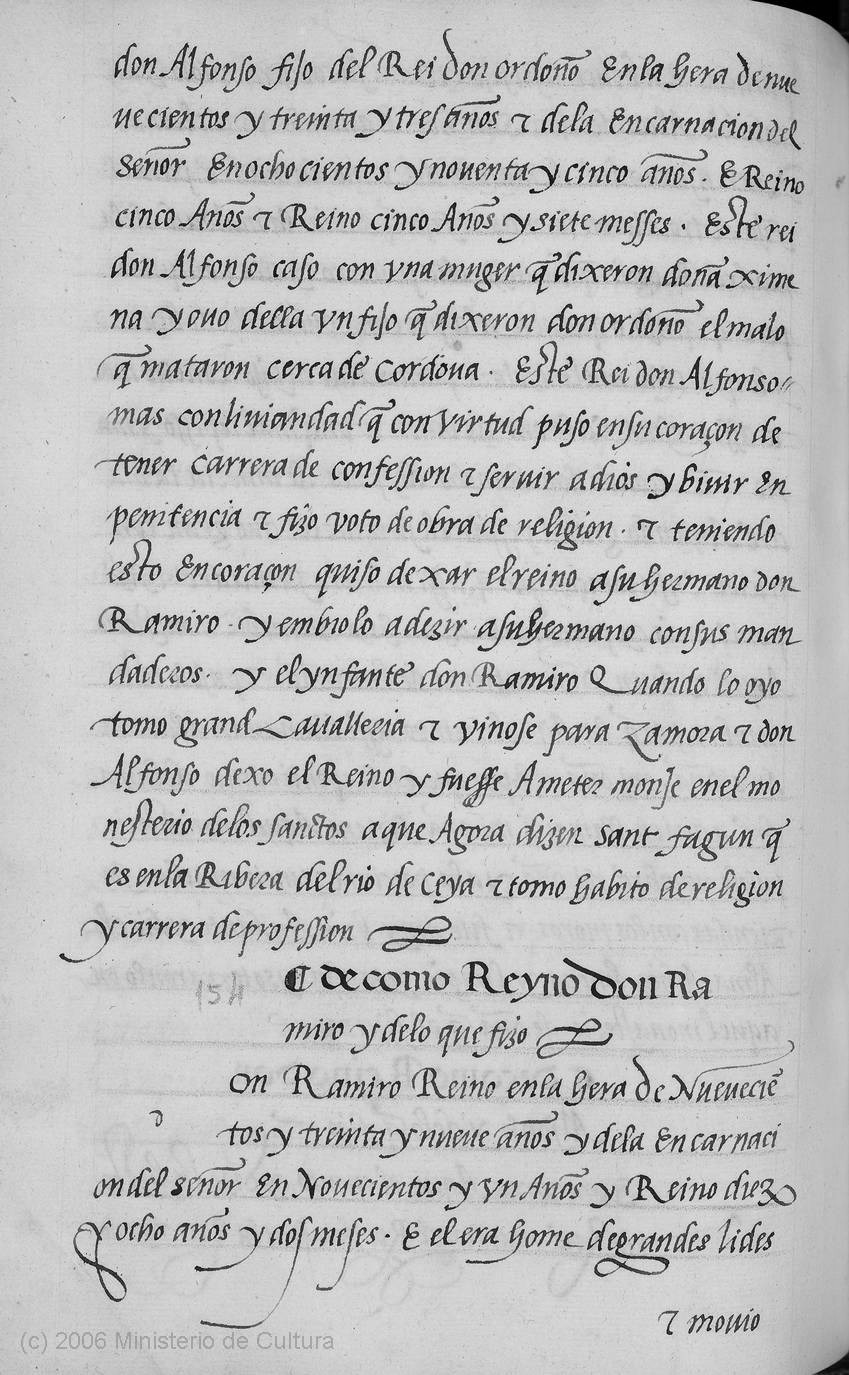 don Alfonso fijo del Rei don ordoño En la hera de nue
ue cientos y treinta y tres años ⁊ dela Encarnacion del
señor En ocho cientos y noventa y cinco años. E Reino
cinco Años ⁊ Reino cinco Años y siete messes. Este rei
don Alfonso caso con vna muger q̃ dixeron doña xime
na y ouo della vn fijo q̃ dixeron don ordoño el malo
q̃ mataron cerca de Cordoua. Este Rei don Alfonso
mas con liuiandad q̃ con virtud puso en su coraçon de
tener carrera de confession ⁊ seruir a dios y biuir En
penitencia ⁊ fizo voto de obra de religion. ⁊ teniendo
esto En coraçon quiso dexar el reino a su hermano don
Ramiro. y embiolo a dezir a su hermano con sus man
daderos. y el ynfante don Ramiro Quando lo oyo
tomo grand Cavalleria ⁊ vinose para Zamora ⁊ don
Alfonso dexo el Reino y fuesse A meter monje en el mo
nesterio delos sanctos a que Agora dizen sant fagun q̃
es en la Ribera del rio de Ceya ⁊ tomo habito de religion
y carrera de profession
154
¶ de como Reyno don Ra
miro y delo que fizo
on Ramiro Reino en la hera de Nueueciẽ
d
tos y treinta y nueve años y dela Encarnaci
on del señor En Novecientos y vn Años y Reino diez
y ocho años y dos meses. E el era home de grandes lides
⁊ mouio
(c) 2006 Ministerio de Cultura